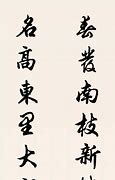 春發南枝新
名高東里大